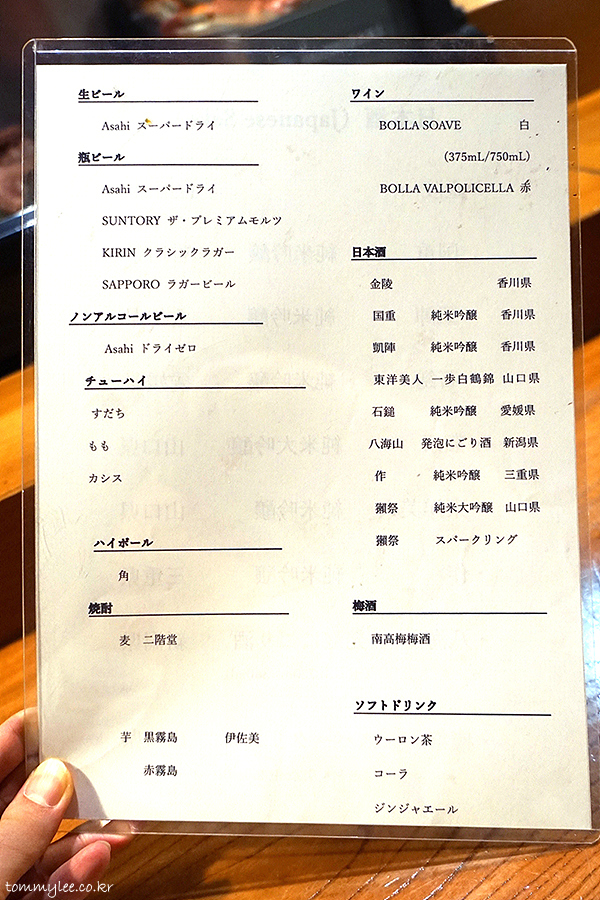 生ビール
Asahi スーパードライ
瓶ビール
Asahi スーパードライ
SUNTORY ザ・プレミアムモルツ
KIRIN クラシックラガー
SAPPORO ラガービール
ノンアルコールビール
Asahi ドライゼロ
チューハイ
すだち
もも
カシス
ハイボール
角
焼酎
麦 二階堂
芋 黒霧島 伊佐美
赤霧島
ワイン
BOLLA SOAVE 白
(375mL/750mL)
BOLLA VALPOLICELLA 赤
日本酒
金陵 香川県
国重 純米吟醸 香川県
凱陣 純米吟醸 香川県
東洋美人 一歩白鶴錦 山口県
石鎚 純米吟醸 愛媛県
八海山 発泡にごり酒 新潟県
作 純米吟醸 三重県
獺祭 純米大吟醸 山口県
獺祭 スパークリング
梅酒
南高梅梅酒
ソフトドリンク
ウーロン茶
コーラ
ジンジャエール
tommylee.co.kr